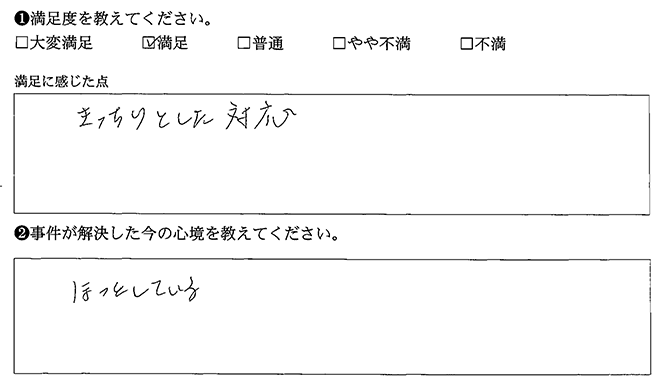 ❶満足度を教えてください。
□大変満足 ☑満足 □普通 □やや不満 □不満
満足に感じた点
きっちりとした対応
❷事件が解決した今の心境を教えてください。
ほっとしている